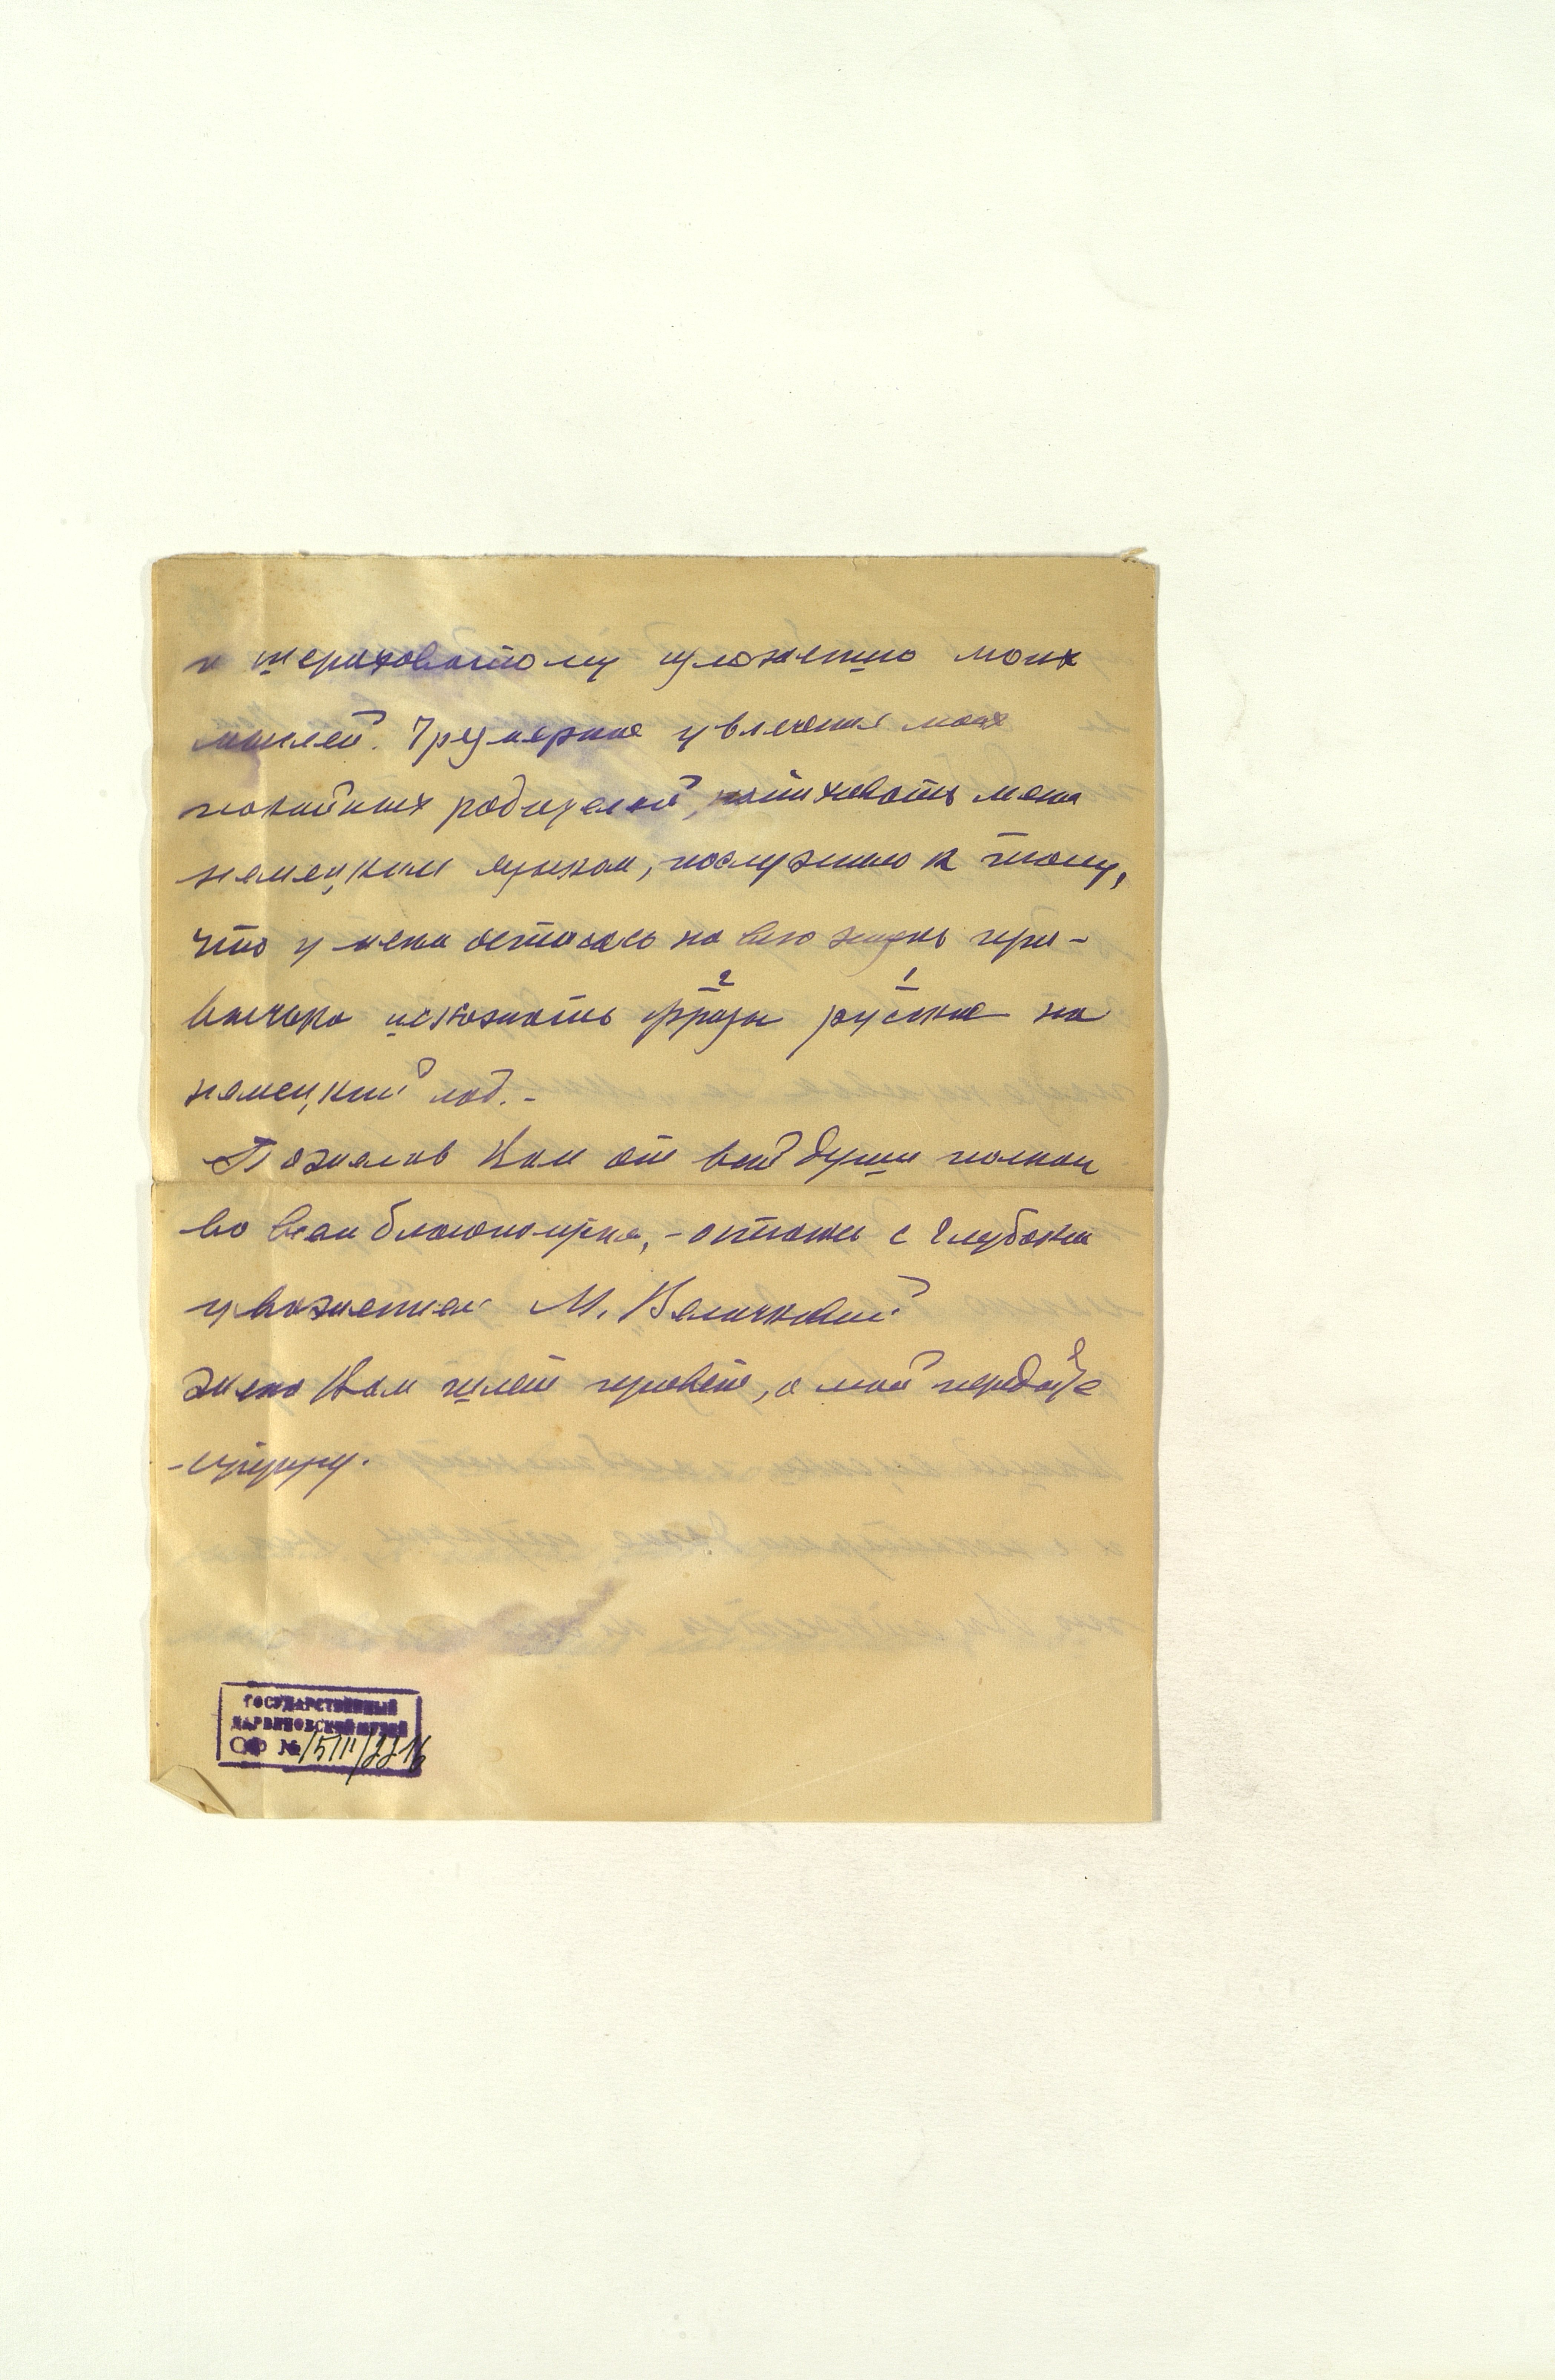 и шероховатому изложению моих
мыслей. Чрезмерное увлечение моих
покойных родителей, напихивать меня
немецким языком, послужило к тому,
что у меня осталась на всю жизнь при-
вычка искажать фразы русские на
2 1
немецкий лад. -
Пожелав Вам от всей души полного
во всем благополучия, - остаюсь с глубоким
уважением М. Величковский
жена Вам шлет привет, а мой передайте
- супругу.
ГОСУДАРСТВЕННЫЙ
ДАРВИНОВСКИЙ МУЗЕЙ
ОФ №